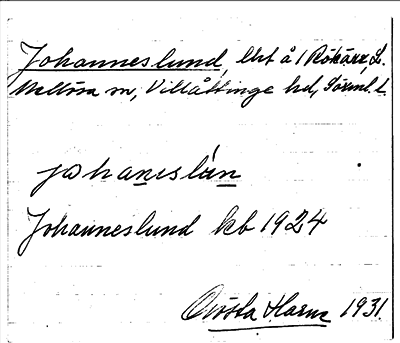 Johanneslund, lht å 1 Rökärr, L.
Mellösa sn, Villåttinge hd, Sörml. L.
johanɩslún
Johanneslund kb 1924
Gösta Harne 1931.